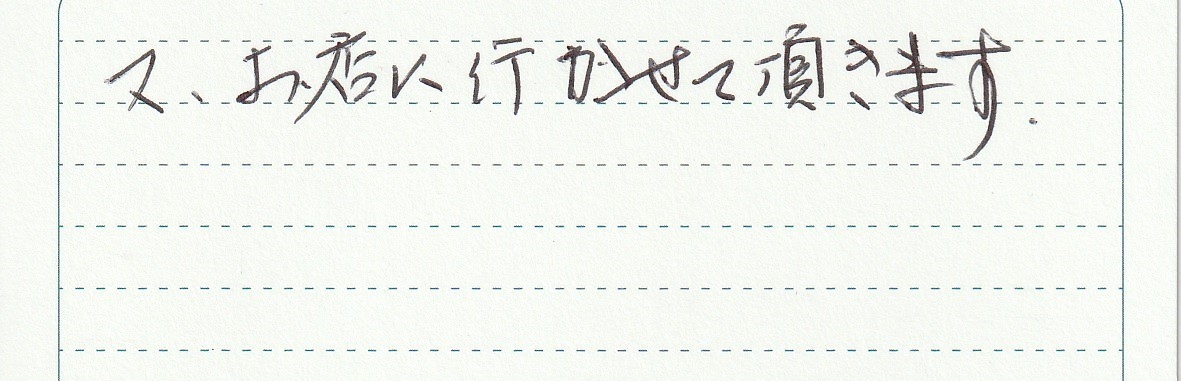 又、お店に行かせて頂きます.